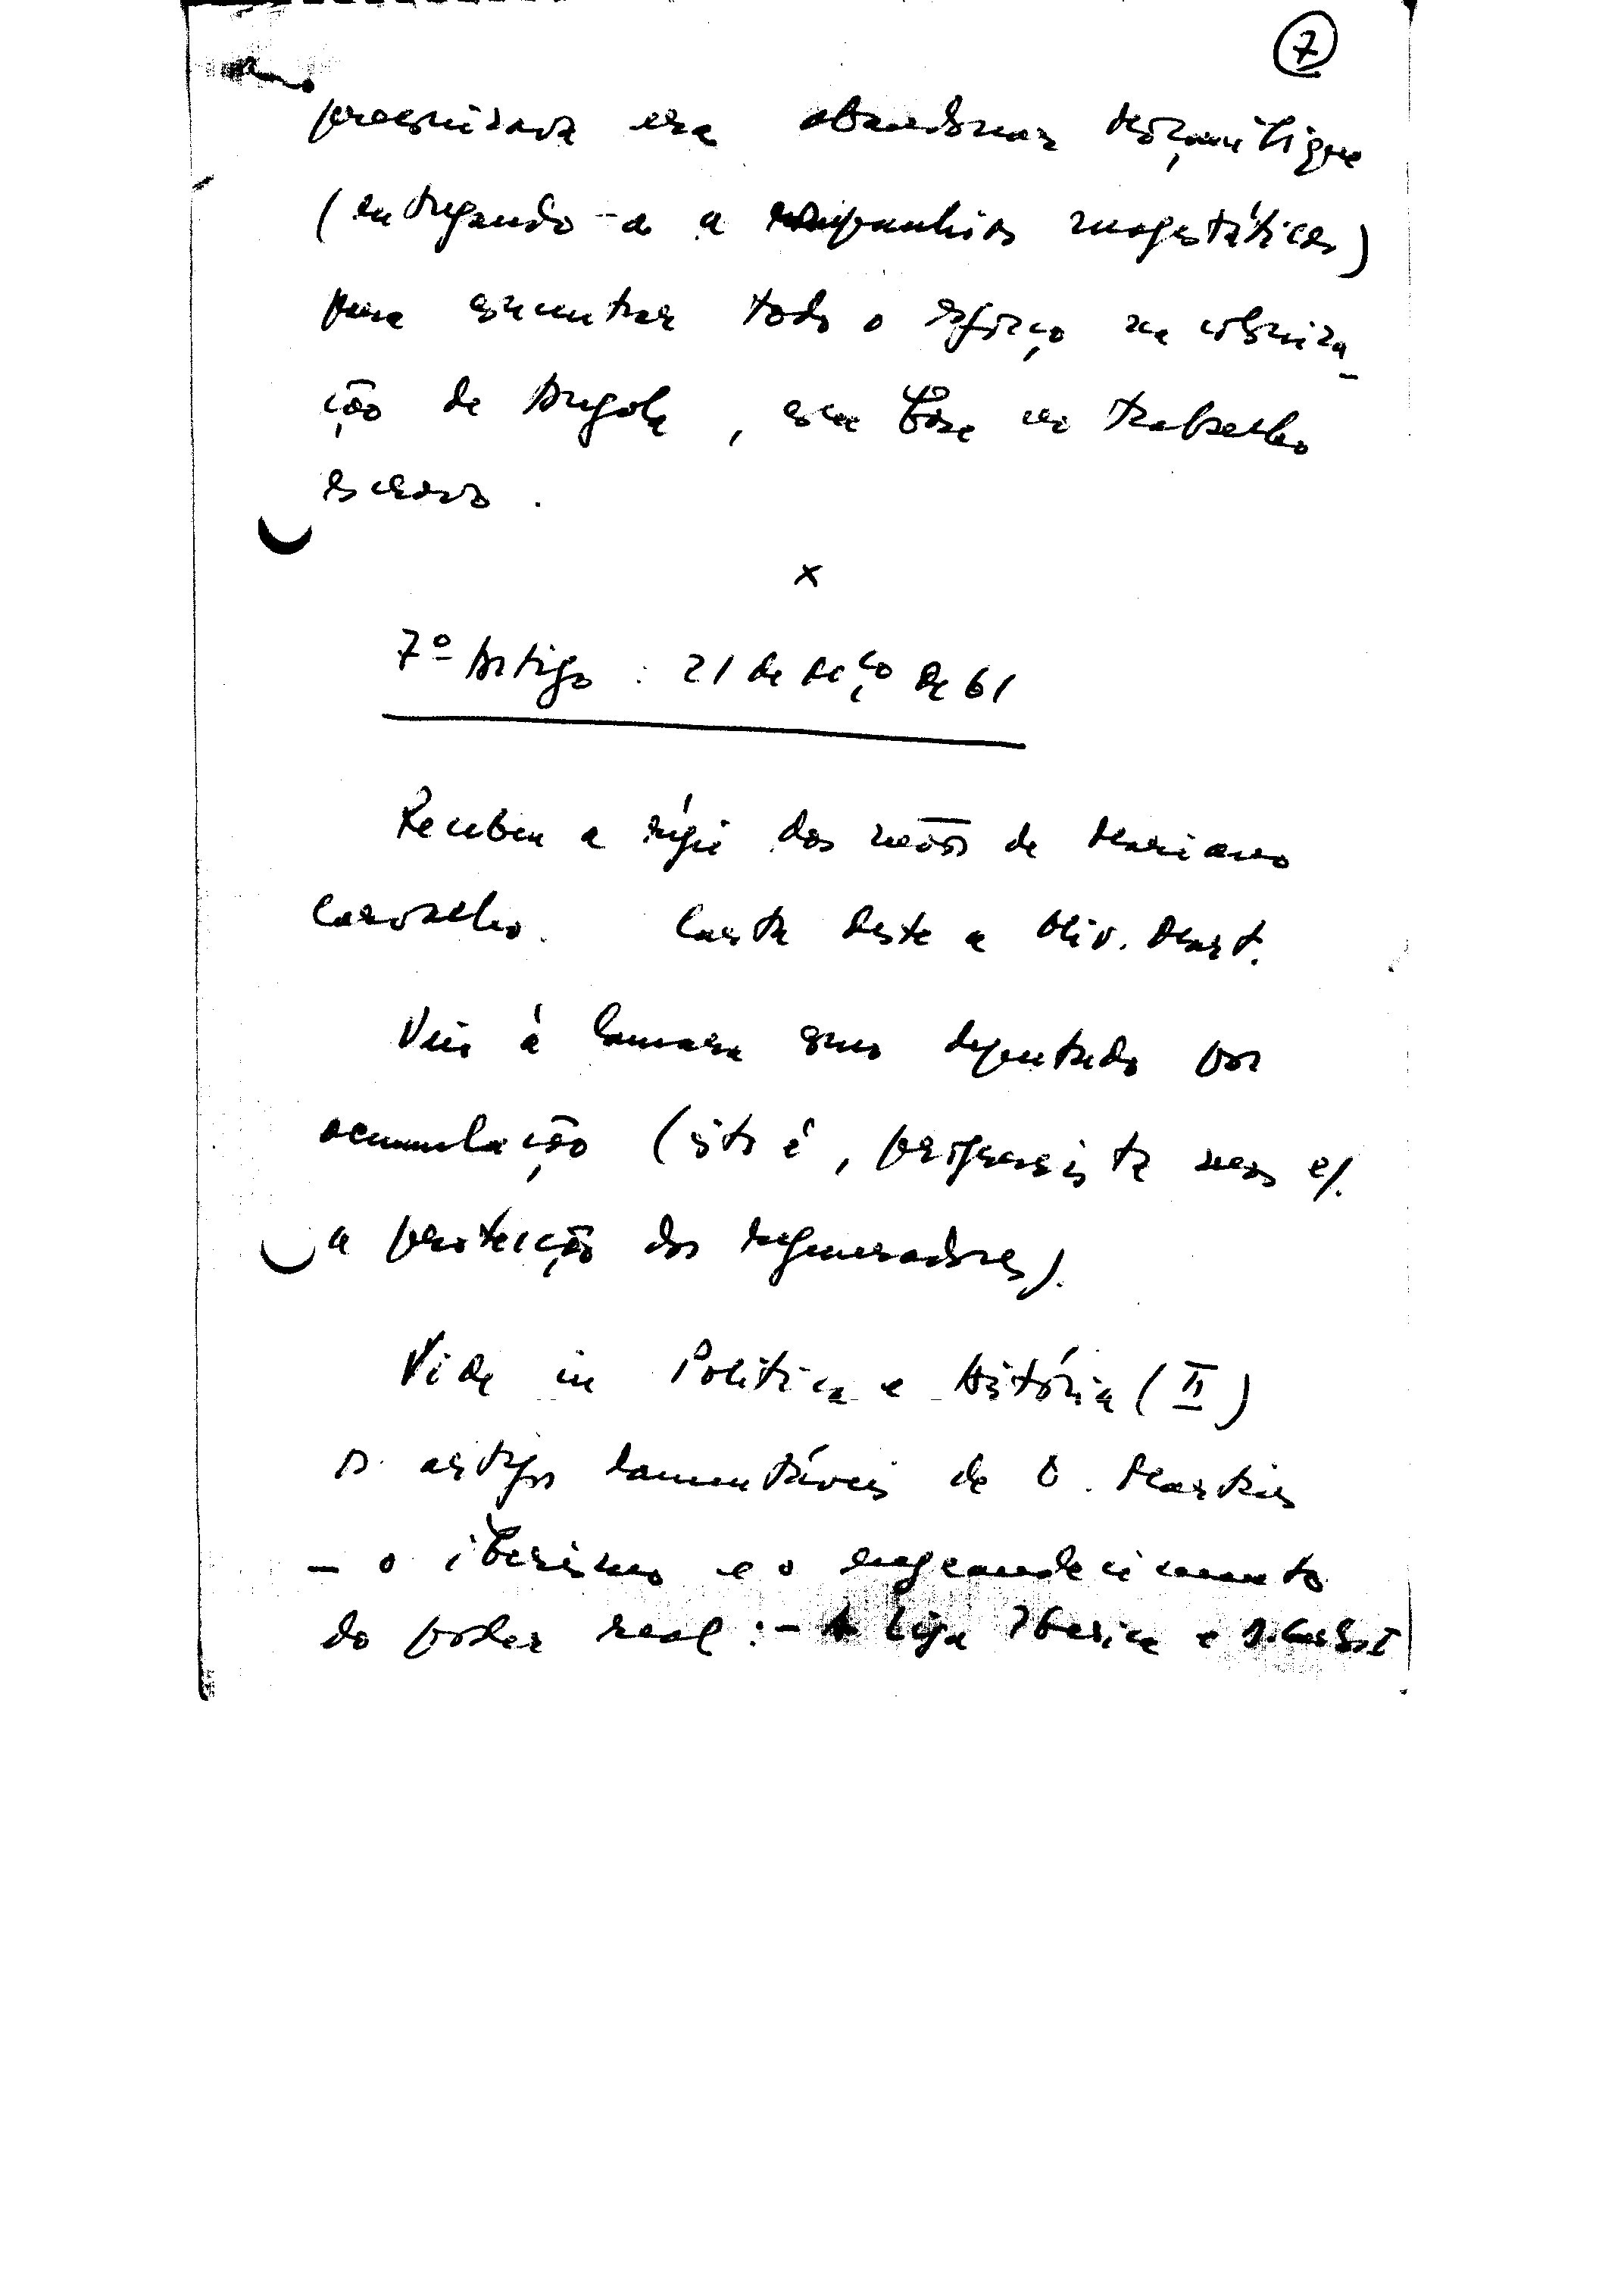 7
preconizava era abandonar Moçambique
(entregando-a a companhias magestáticas)
para concentrar todo o esfôrço na coloniza_
ção de Angola, com base no trabalho
escravo.
x
7º Artigo : 21 de Mço de 61
Recebeu a régie das mãos de Mariano
Carvalho. Carta deste a Oliv. Mart.
Veio à Camara como deputado por
acumulação (isto é, progressista mas c/.
a proteicção dos regeneradores).
Vide in Politica e História (II)
os artigos lamentáveis de O. Martins
- o iberismo e o engrandecimento
do poder real :- A Liga Iberica e D. Carlos I